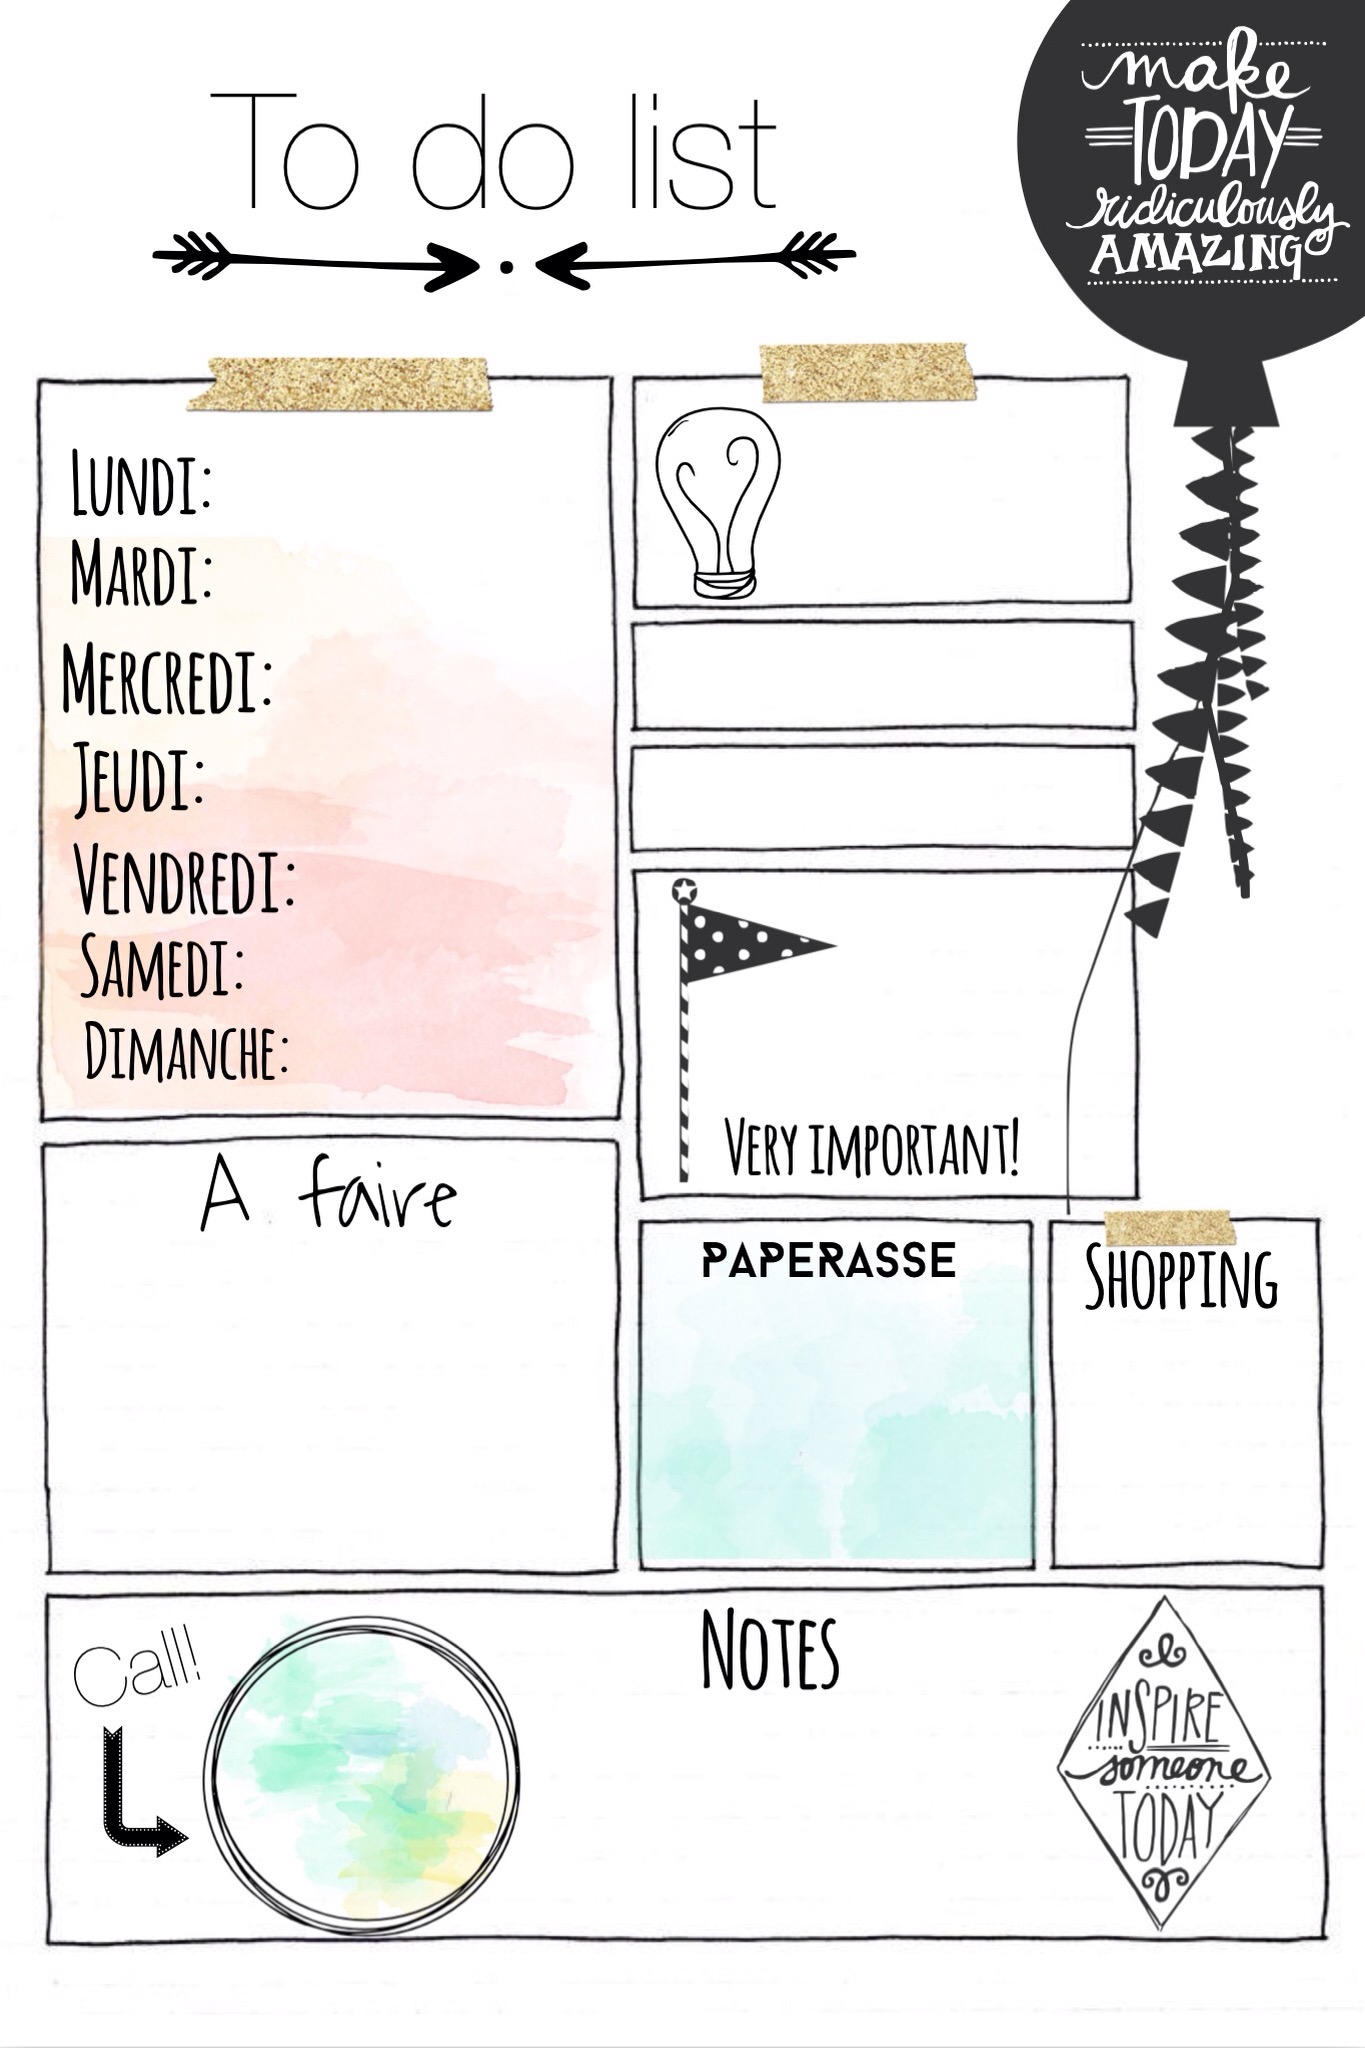 To do list
make
TODAY
ridiculously
AMAZING
Lundi:
Mardi:
Mercredi:
Jeudi:
Vendredi:
Samedi:
Dimanche:
Very important!
A faire
PAPERASSE
Shopping
Call!
Notes
INSPIRE
someone
TODAY